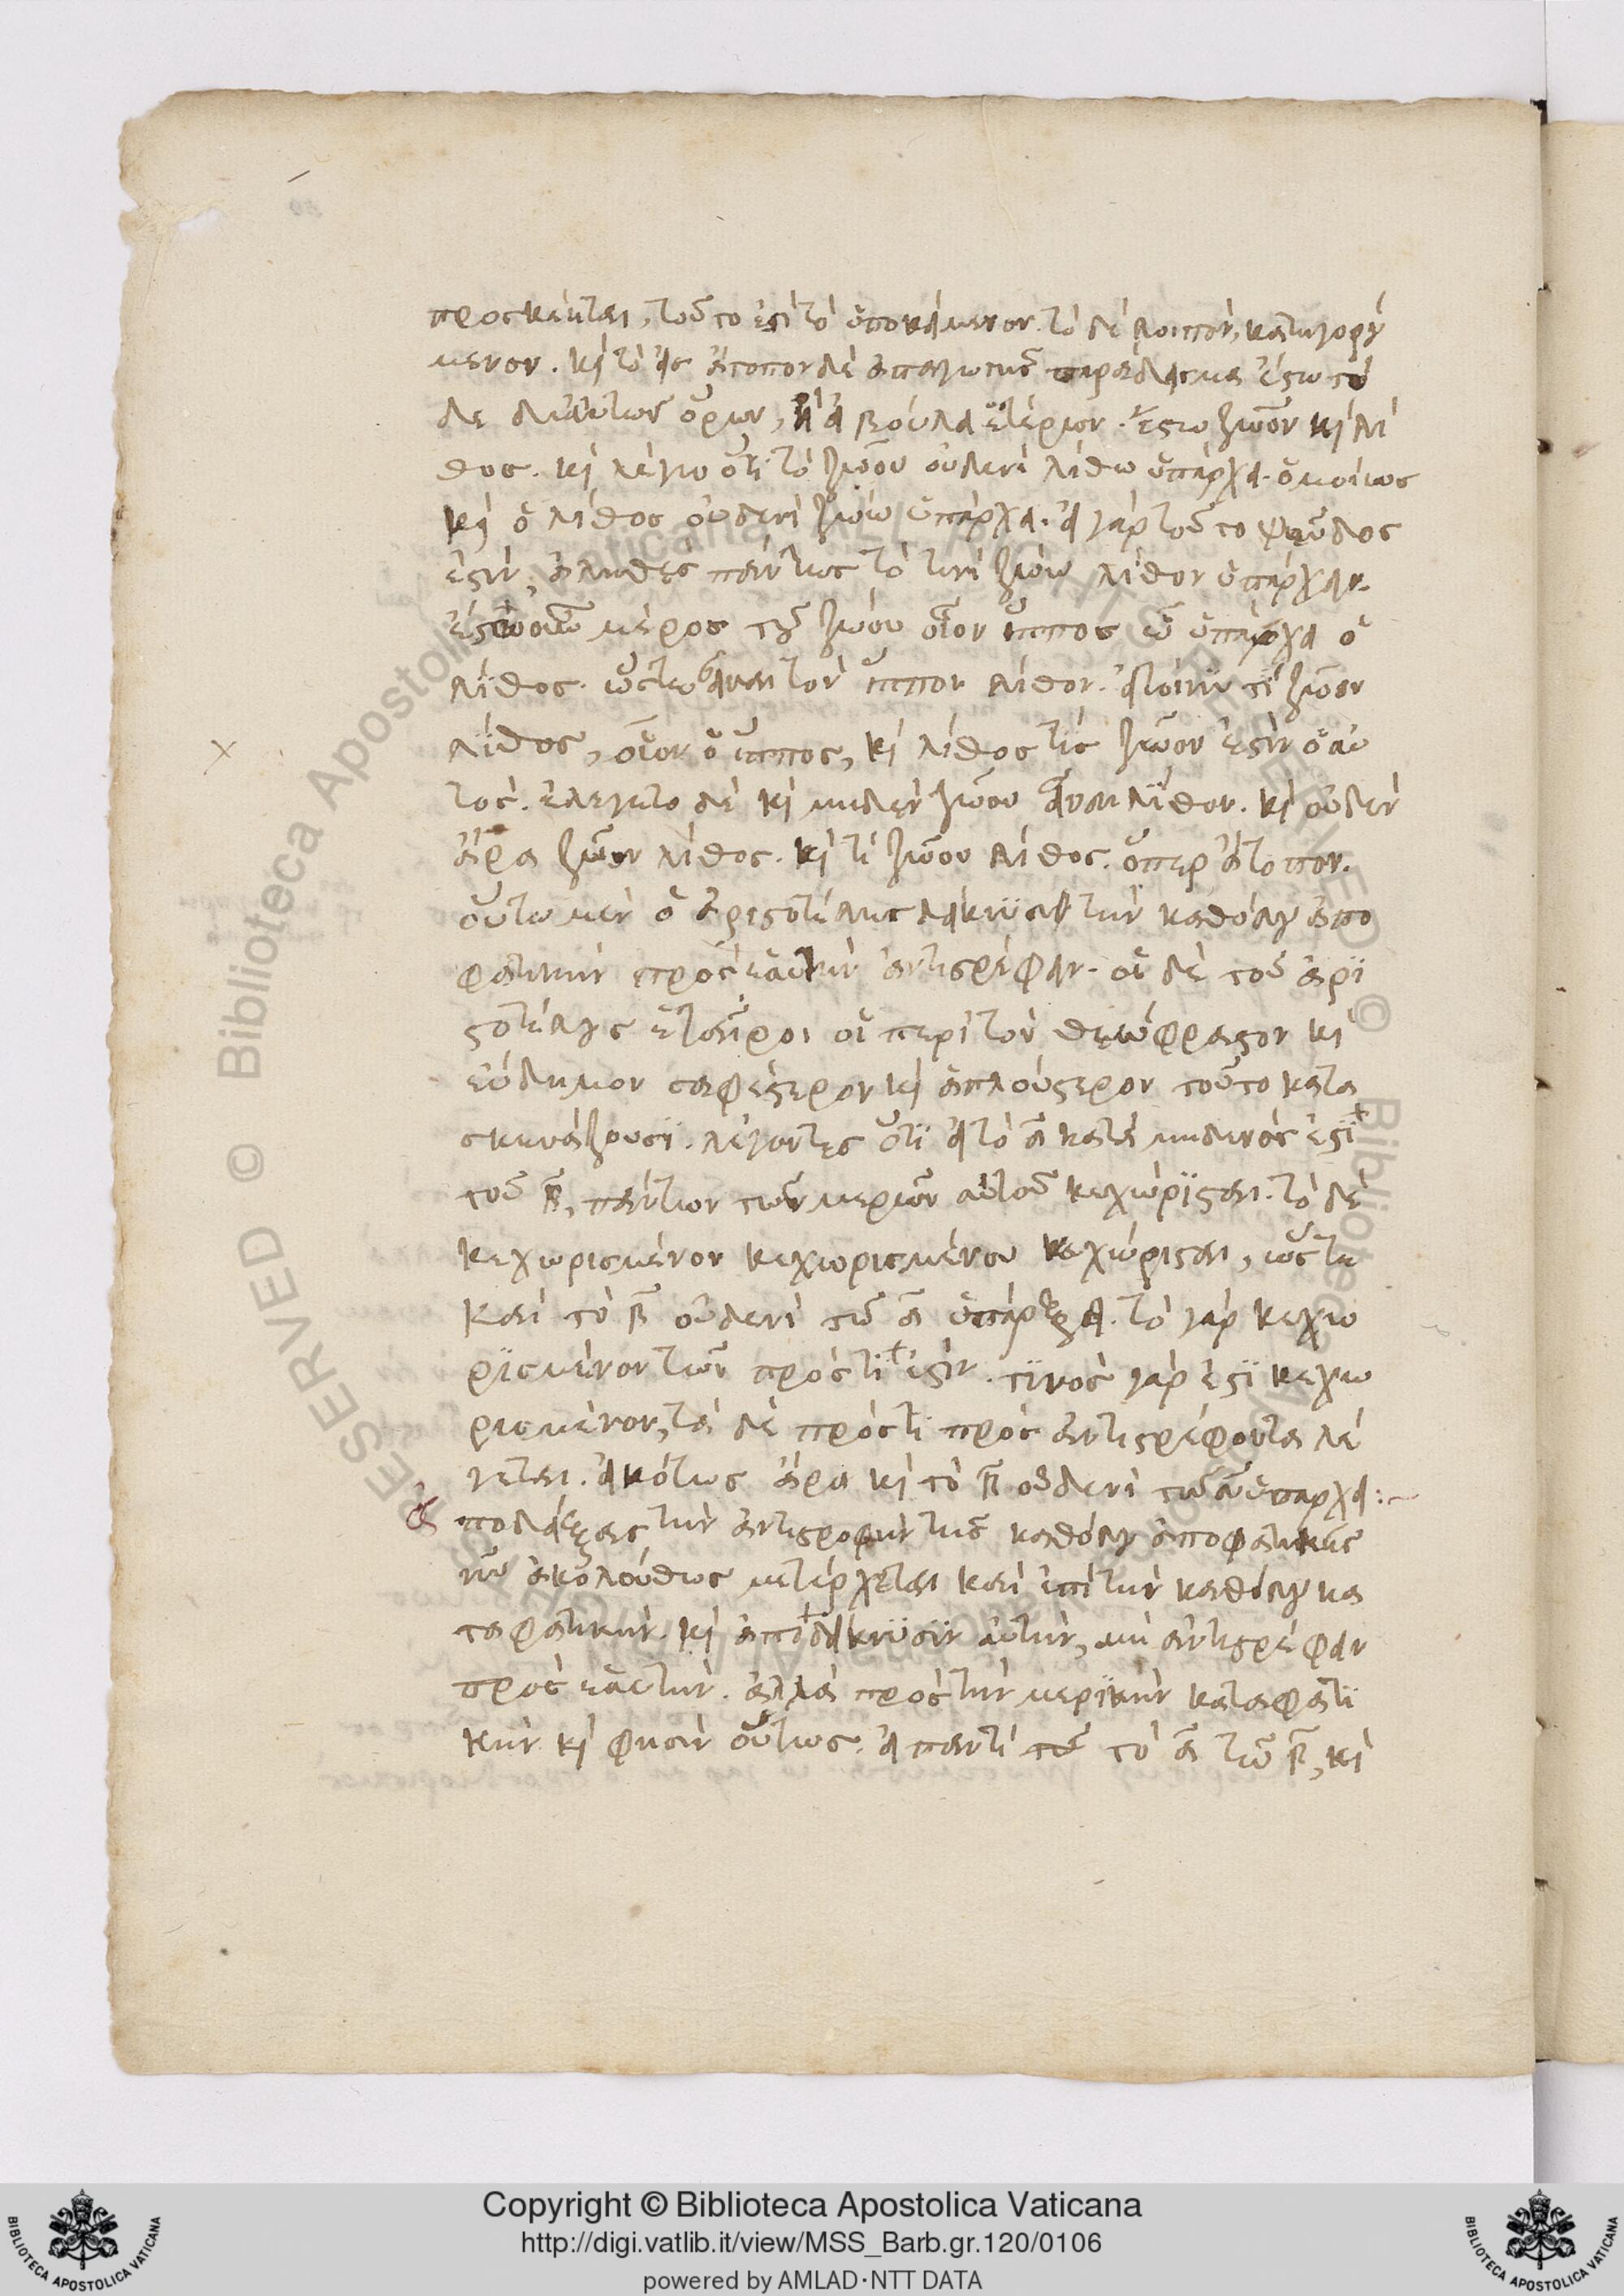 προσκέηται, τοῦτο ἐστὶ τὸ ὑποκείμενον. τὸ δὲ λοιπὸν, κατηγορού
μενον. κὶ τὸ εἰς ἄτοπον δὲ ἀπαγωγῆς παράδειγμα ἔστω τό
δε διὰ αὐτῶν ὅρων, ἢ εἰ βούλει ἑτέρων. ἔστω ζῶον κὶ λί
θος. κὶ λέγω ὅτι τὸ ζῶον οὐδενὶ λίθω ὑπάρχει. ὁμοίως
κὶ ὁ λίθος οὐδενὶ ζώω ὑπάρχει. εἰ γὰρ τοῦτο ψεῦδος
ἐστὶν, ἀληθὲς πάντως τὸ τινὶ ζώω λίθον ὑπάρχειν.
ἔστω οὖν μέρος τοῦ ζώου οἷον ἵππος ὧ ὑπάρχει ὁ
λίθος. ὥστε εἶναι τὸν ἵππον λίθον. εἰ τοίνυν τὶ ζῶον
λίθος, οἷον ὁ ἵππος, κὶ λίθος τὶς ζῶον ἐστὶν ὁ αὐ
τός. ἐλέγετο δὲ κὶ μηδὲν ζῶον εἶναι λίθον. κὶ οὐδὲν
ἄρα ζῶον λίθος. κὶ τὶ ζῶον λίθος. ὅπερ ἄτοπον.
οὕτω μὲν ὁ ἀριστοτέλης δείκνυσι τὴν καθόλου ἀπο
φατικὴν πρὸς ἑαυτὴν ἀντιστρέφειν. οἱ δὲ τοῦ ἀρι
στοτέλους ἑταῖροι οἱ περὶ τὸν θεώφραστον κὶ
εὔδημον σαφέστερον κὶ ἁπλούστερον τοῦτο κατα
σκευάζουσι. λέγοντες ὅτι εἰ τὸ α κατὰ μηδενὸς ἐστὶ
τοῦ β, πάντων τῶν μερῶν αὐτοῦ κεχώρισται. τὸ δὲ
κεχωρισμένον κεχωρισμένου κεχώρισται, ὥστε
καὶ τὸ β οὐδενὶ τῶ α ὑπάρξει. τὸ γὰρ κεχω
ρισμένον τῶν πρός τι ἐστὶν. τινὸς γὰρ ἐστὶ κεχω
ρισμένον, τὰ δὲ πρός τι πρὸς ἀντιστρέφοντα λέ
γεται. εἰκότως ἄρα κὶ τὸ β οὐδενὶ τῶ α ὑπάρχει:~
ἀποδείξας τὴν ἀντιστροφὴν τῆς καθόλου ἀποφατικῆς
νῦν ἀκολούθως μετέρχεται καὶ ἐπὶ τὴν καθόλου κα
ταφατικὴν. κὶ ἀποδείκνυσιν αὐτὴν, μὴ ἀντιστρέφειν
πρὸς ἑαυτὴν. ἀλλὰ πρὸς τὴν μερικὴν καταφατι
κὴν κὶ φησὶν οὕτως. εἰ παντὶ τὸ α τῶ β, κὶ
Copyright © Biblioteca Apostolica Vaticana
http://digi.vatlib.it/view/MSS_Barb.gr.120/0106
powered by AMLAD·NTT DATA